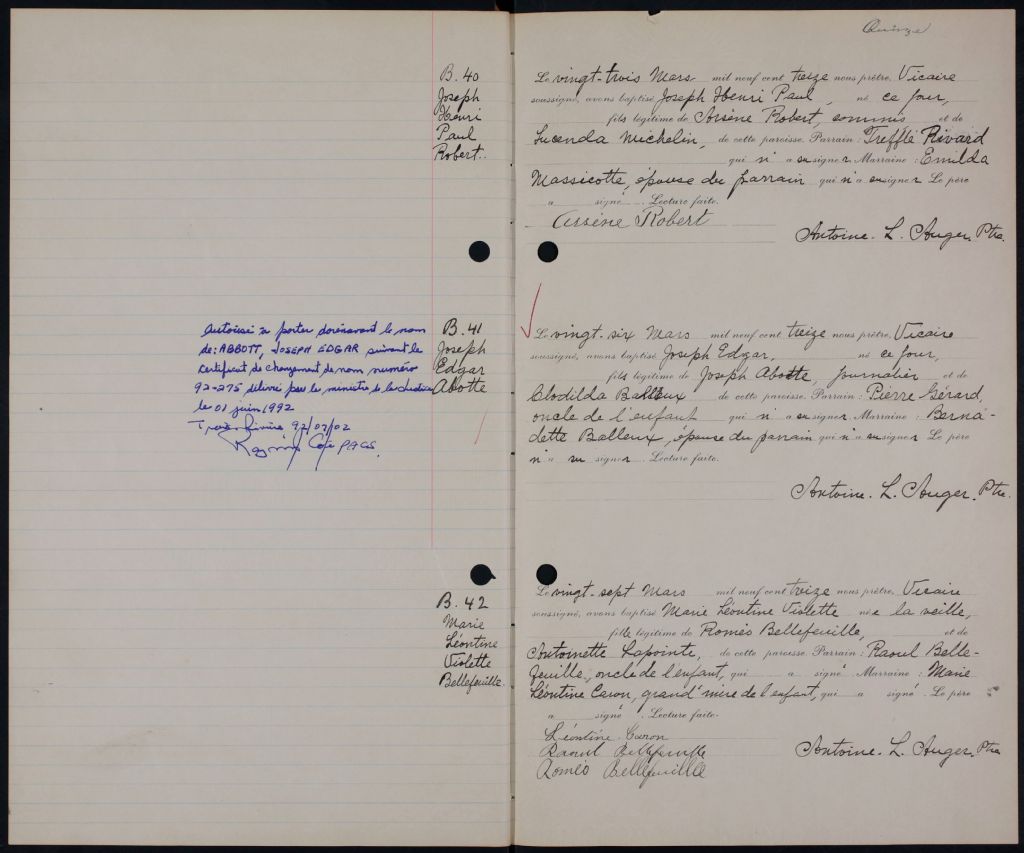 Quinze
B. 40
Joseph
Henri
Paul
Robert.
Le vingt-trois Mars mil neuf cent treize nous prêtre, Vicaire
soussigné, avons baptisé Joseph Henri Paul, né ce jour,
fils légitime de Arsène Robert, commis et de
Lucenda Michelin, de cette paroisse. Parrain : Trefflé Rivard
qui n'a su signer. Marraine : Emilda
Massicotte, épouse du parrain qui n'a su signer Le père
a signé . Lecture faite.
Arsène Robert
Antoine. L. Auger. Ptre.
Autorisé à porter dorénavant le nom
de: ABBOTT, JOSEPH EDGAR suivant le
certificat de changement de nom numéro
92-275 délivré par le ministre de la Justice
le 01 juin 1992
Trois-Rivières 92/07/02
PAGS
B. 41
Joseph
Edgar
Abotte
Le vingt-six Mars mil neuf cent treize nous prêtre, Vicaire
soussigné, avons baptisé Joseph Edgar, né ce jour,
fils légitime de Joseph Abotte, journalier et de
Clodilda Belleux de cette paroisse. Parrain : Pierre Gérard,
oncle de l'enfant qui n'a su signer. Marraine : Berna-
dette Belleux, épouse du parrain qui n'a su signer Le père
n'a su signer . Lecture faite.
Antoine. L. Auger. Ptre.
B. 42
Marie
Léontine
Violette
Bellefeuille.
Le vingt-sept Mars mil neuf cent treize nous prêtre, Vicaire
soussigné, avons baptisé Marie Léontine Violette née la veille,
fille légitime de Roméo Bellefeuille, et de
Antoinette Lapointe, de cette paroisse. Parrain : Raoul Belle-
feuille, oncle de l'enfant, qui a signé Marraine : Marie
Léontine Caron, grand'mère de l'enfant, qui a signé . Le père
a signé . Lecture faite.
Léontine Caron
Raoul Bellefeuille
Roméo Bellefeuille
Antoine. L. Auger. Ptre